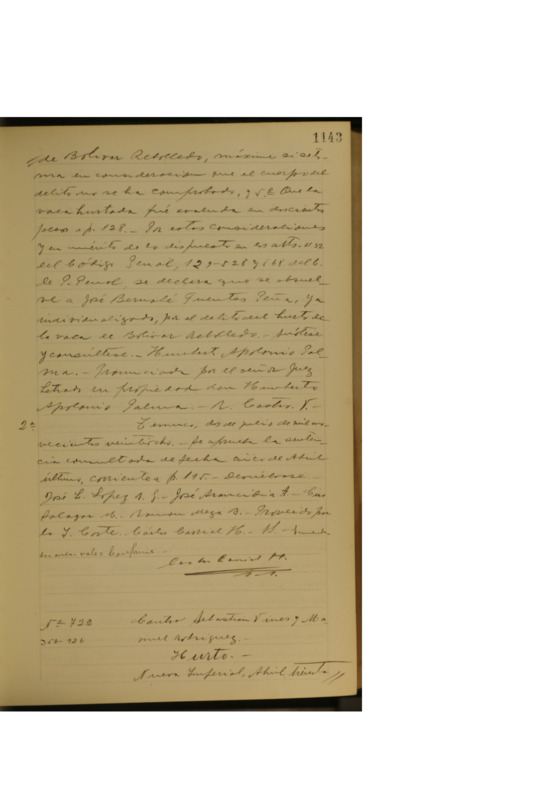 1143
de Bolivar Rebolledo, máxime si se to-
ma en consideracion que el cuerpo del
delito no se ha comprobado, y 5.º Que la
vaca hurtada fué avaluada en doscientos
pesos a p. 128.- Por estas consideraciones
y en mérito de lo dispuesto en los arts.
del Código Penal, del C.
de P. Penal, se declara que se absuel-
ve a José Bernabé Fuentes Peña, ya
individualizado, por el delito del hurto de
la vaca de Bolivar Rebolledo.- Anótese
y consúltese.- Humberto Apolonio Pal-
ma.- Pronunciada por el señor Juez
Letrado en propiedad don Humberto
Apolonio Palma.- R. Castro
2ª Temuco, dos de julio de mil no-
vecientos veintiocho.- Se aprueba la senten-
cia consultada de fecha cinco de Abril
último, corriente a p. 195.- Devuélvase.-
José L. Lopez José Arancibia
Salazar Ramon Meza B.- Proveido por
la I. Corte.- Cárlos Coronel H.-
conforme.-
Nº 722 Contra Sebastian y Ma-
nuel Rodriguez.-
Hurto.-
Nueva Imperial, Abril treinta